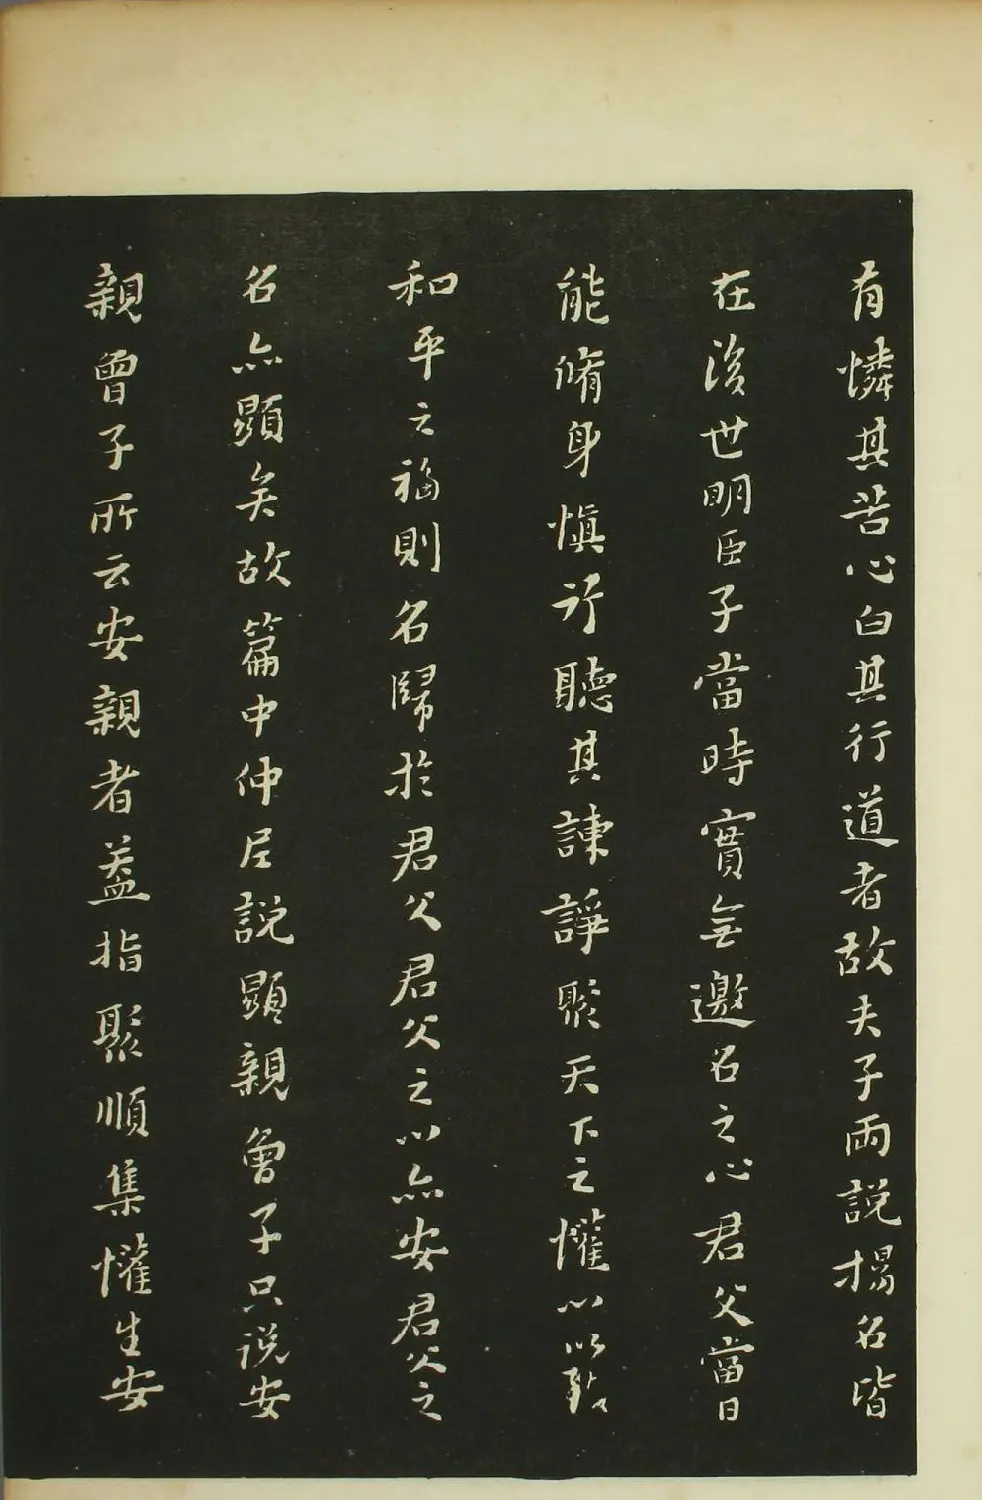 有憐其苦心白其行道者故夫子兩説揚名皆
在後世明臣子當時實無邀名之心君父當日
能脩身慎行聽其諫諍聚天下之懽心以致
和平之福則名歸於君父君父之心亦安君父之
名亦顯矣故篇中仲尼説顯親曾子只説安
親曾子所云安親者蓋指聚順集懽生安